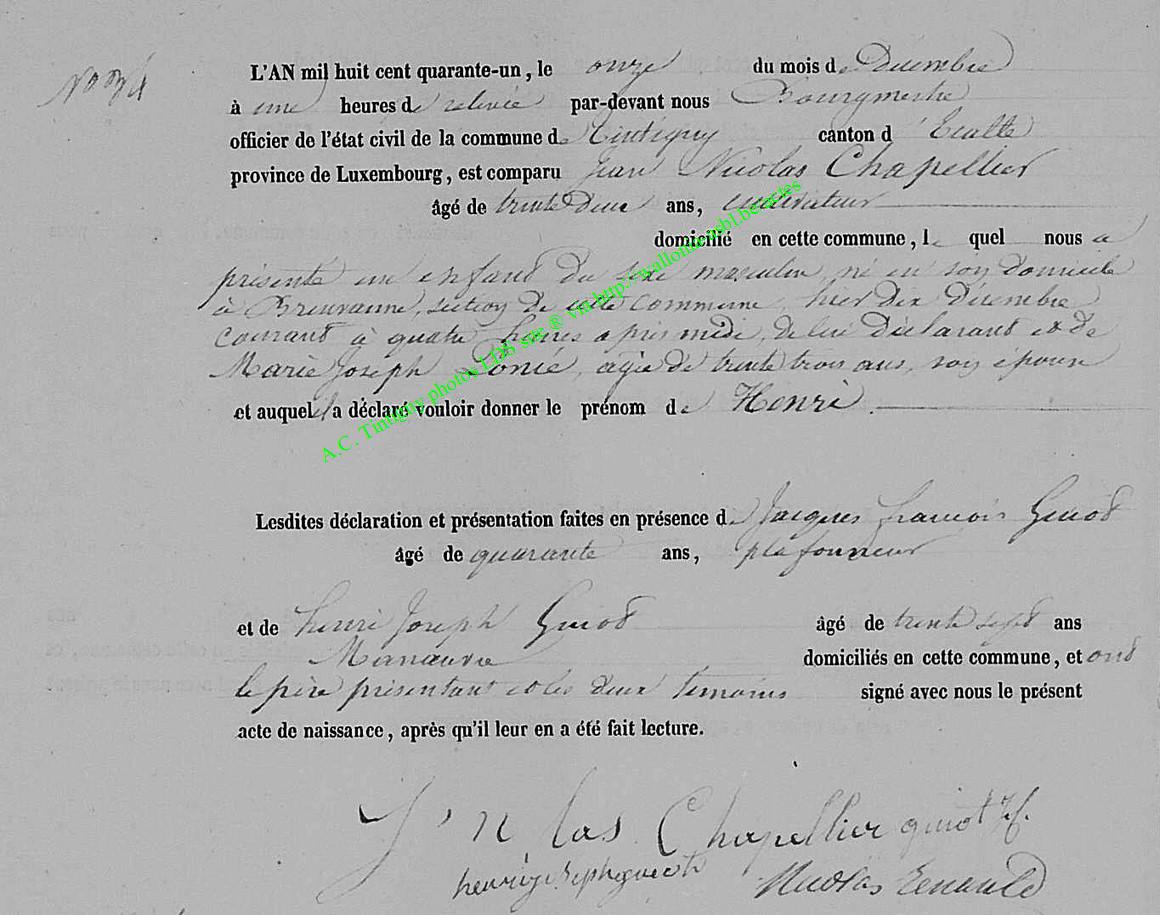 N° 84
L'AN mil huit cent quarante-un, le onze du mois de Décembre
à une heures de relevée par-devant nous Bourgmestre
officier de l'état civil de la commune de Tintigny canton d'Etalle
province de Luxembourg, est comparu Jean Nicolas Chapellier
âgé de trente deux ans, cultivateur
domicilié en cette commune, le quel nous a
présenté un enfant du sexe masculin, né en son domicile
à Breuvanne, section de cette commune, hier dix décembre
courant à quatre heures après midi, de lui déclarant et de
Marie Joseph Lonié, agée de trente trois ans, son épouse
et auquel il a déclaré vouloir donner le prénom de Henri.
Lesdites déclaration et présentation faites en présence de Jacques francois Guiot
âgé de quarante ans, plafonneur
et de henri Joseph Guiot âgé de trente sept ans
Manœuvre domiciliés en cette commune, et ont
le père présentant et les deux temoins signé avec nous le présent
acte de naissance, après qu'il leur en a été fait lecture.
J' N las Chapellier guiot J f.
henri josephguiot Nicolas Renauld
A.C. Tintigny photos LDS site @ via http://wallonia.asbl.be/actes